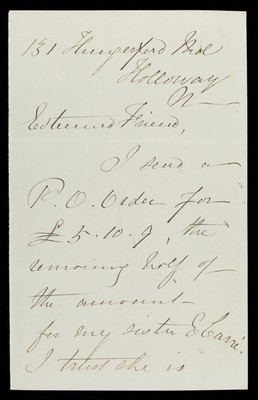 131 Hungerford Rd
Holloway
N
Esteemed Friend,
I send a
P. O. Order for
£ 5. 10. 9, the
remaing half of
the amount
for my sister E Carré.
I trust she is